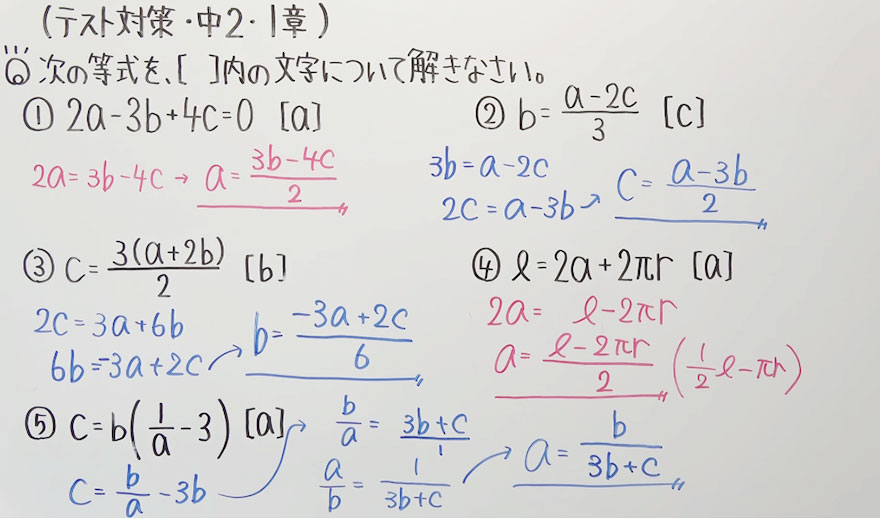 (テスト対策・中2・1章)
⑥ 次の等式を、[ ]内の文字について解きなさい。
① 2a-3b+4c=0 [a]
2a=3b-4c → a=(3b-4c)/2
② b=(a-2c)/3 [c]
3b=a-2c
2c=a-3b → c=(a-3b)/2
③ c=3(a+2b)/2 [b]
2c=3a+6b
6b=-3a+2c → b=(-3a+2c)/6
④ ℓ=2a+2πr [a]
2a= ℓ-2πr
a=(ℓ-2πr)/2 (1/2 ℓ-πr)
⑤ c=b(1/a-3) [a]
c=b/a-3b →
b/a=(3b+c)/1
a/b=1/(3b+c) → a=b/(3b+c)